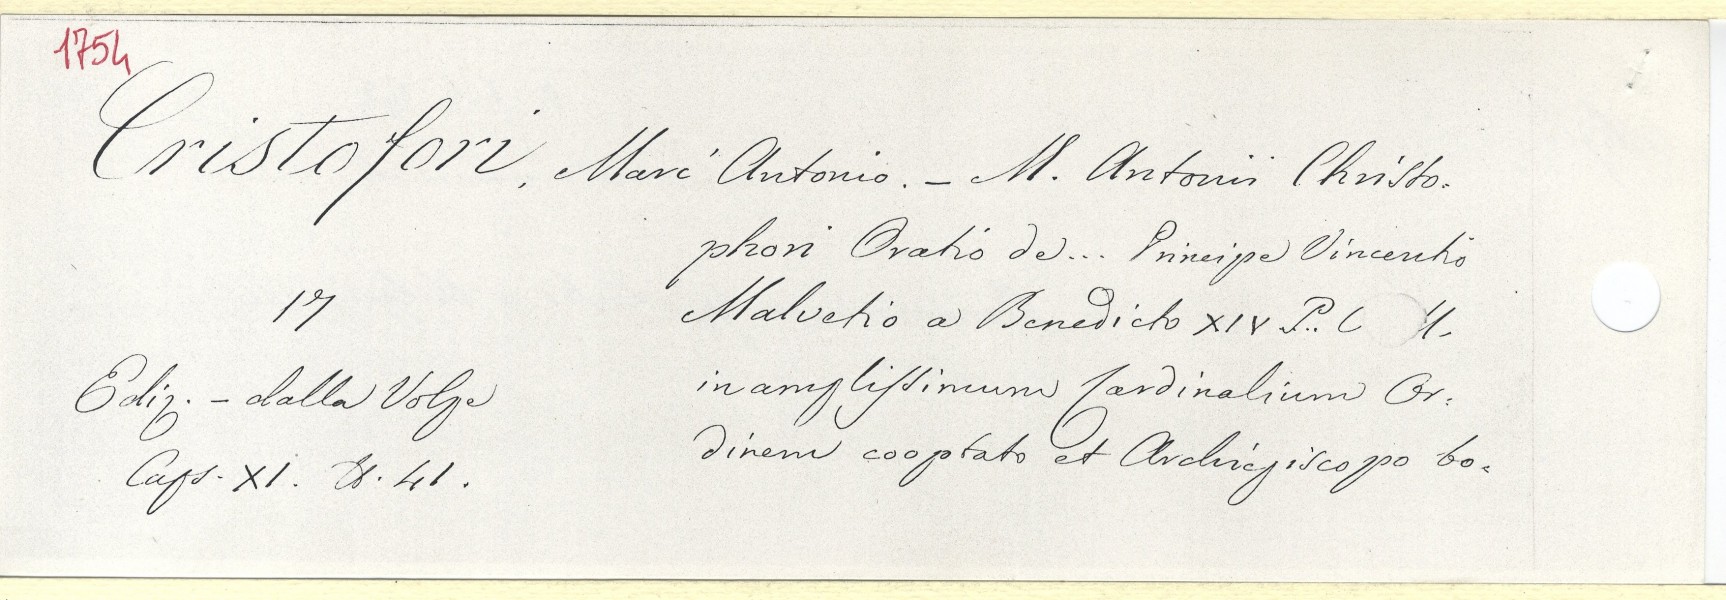 1754
Cristofori, Marc' Antonio. - M. Antonii Christo-
phori Oratio de... Principe Vincentio
17
Malvetio a Benedicto XIV P.
Ediz. - dalla Volpe
in amplissimum Cardinalium Or-
Caps. XI. N. 41.
dinem cooptato et Archiepiscopo bo-